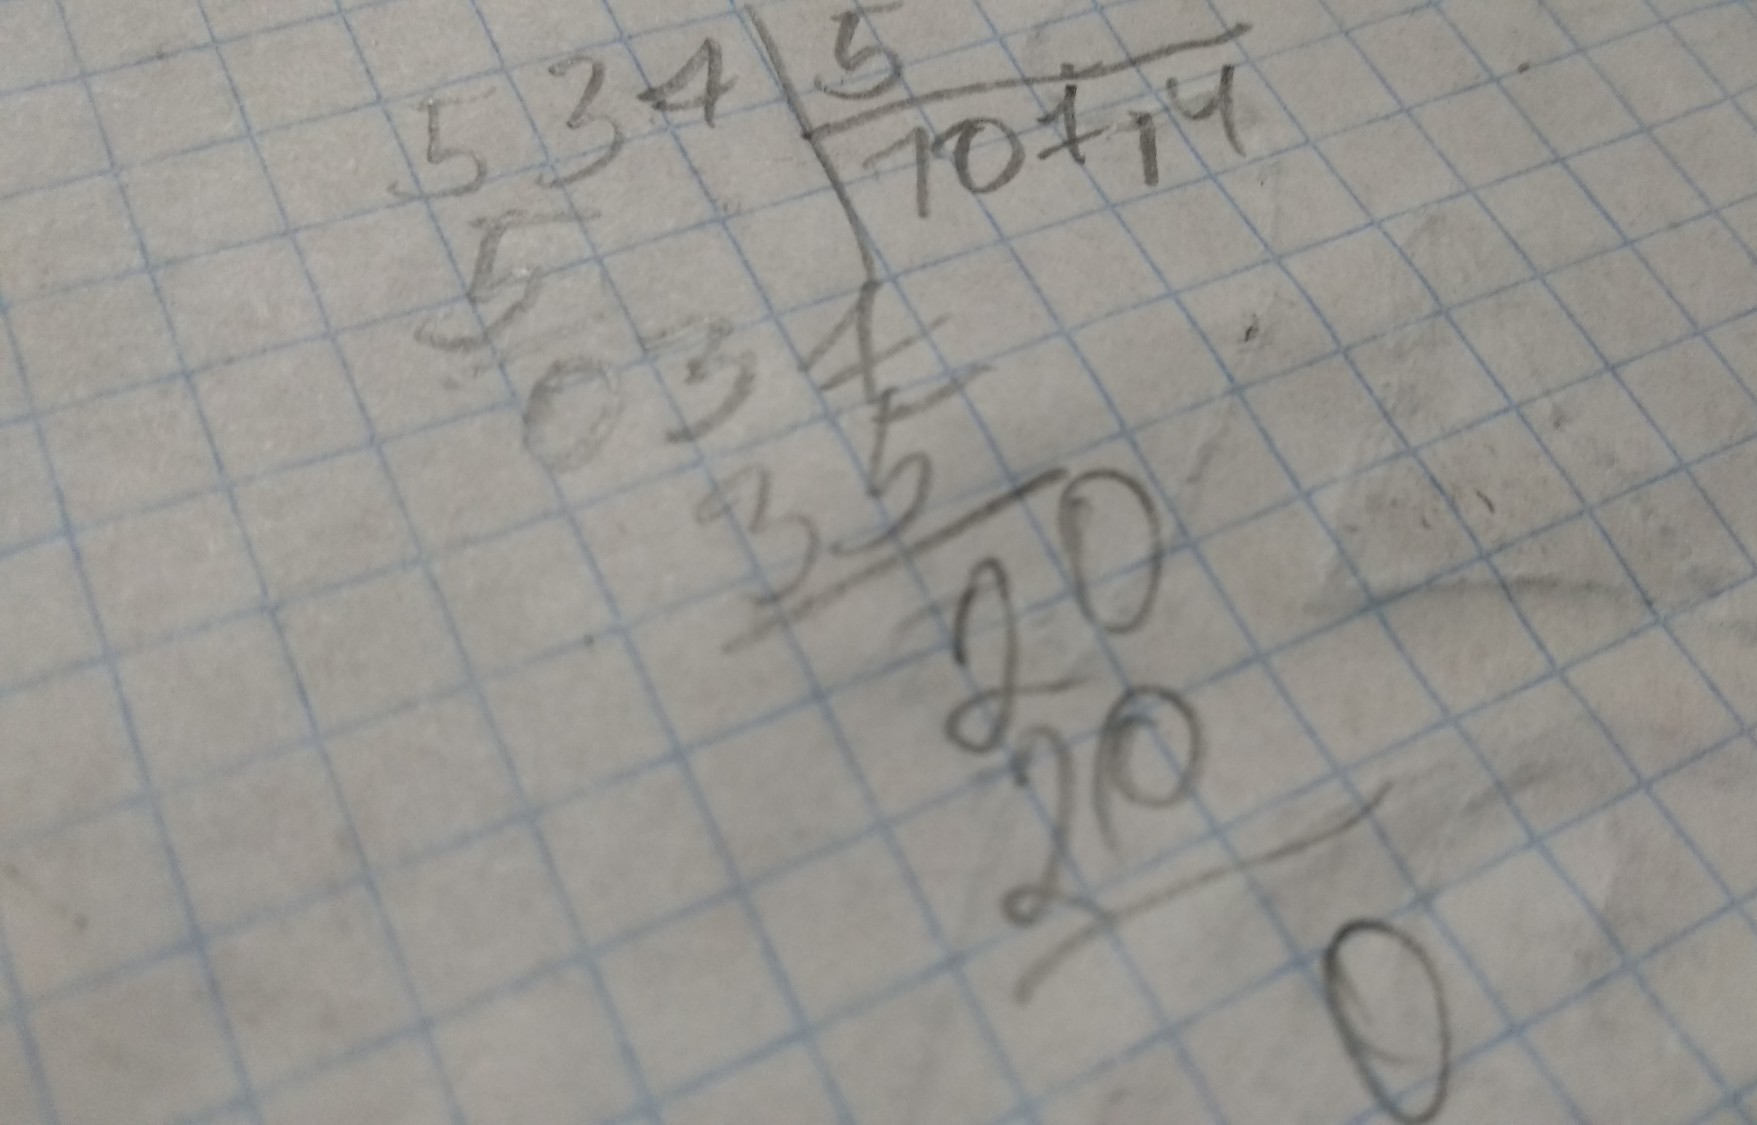 534 5
5 107,4
034
35
20
20
0